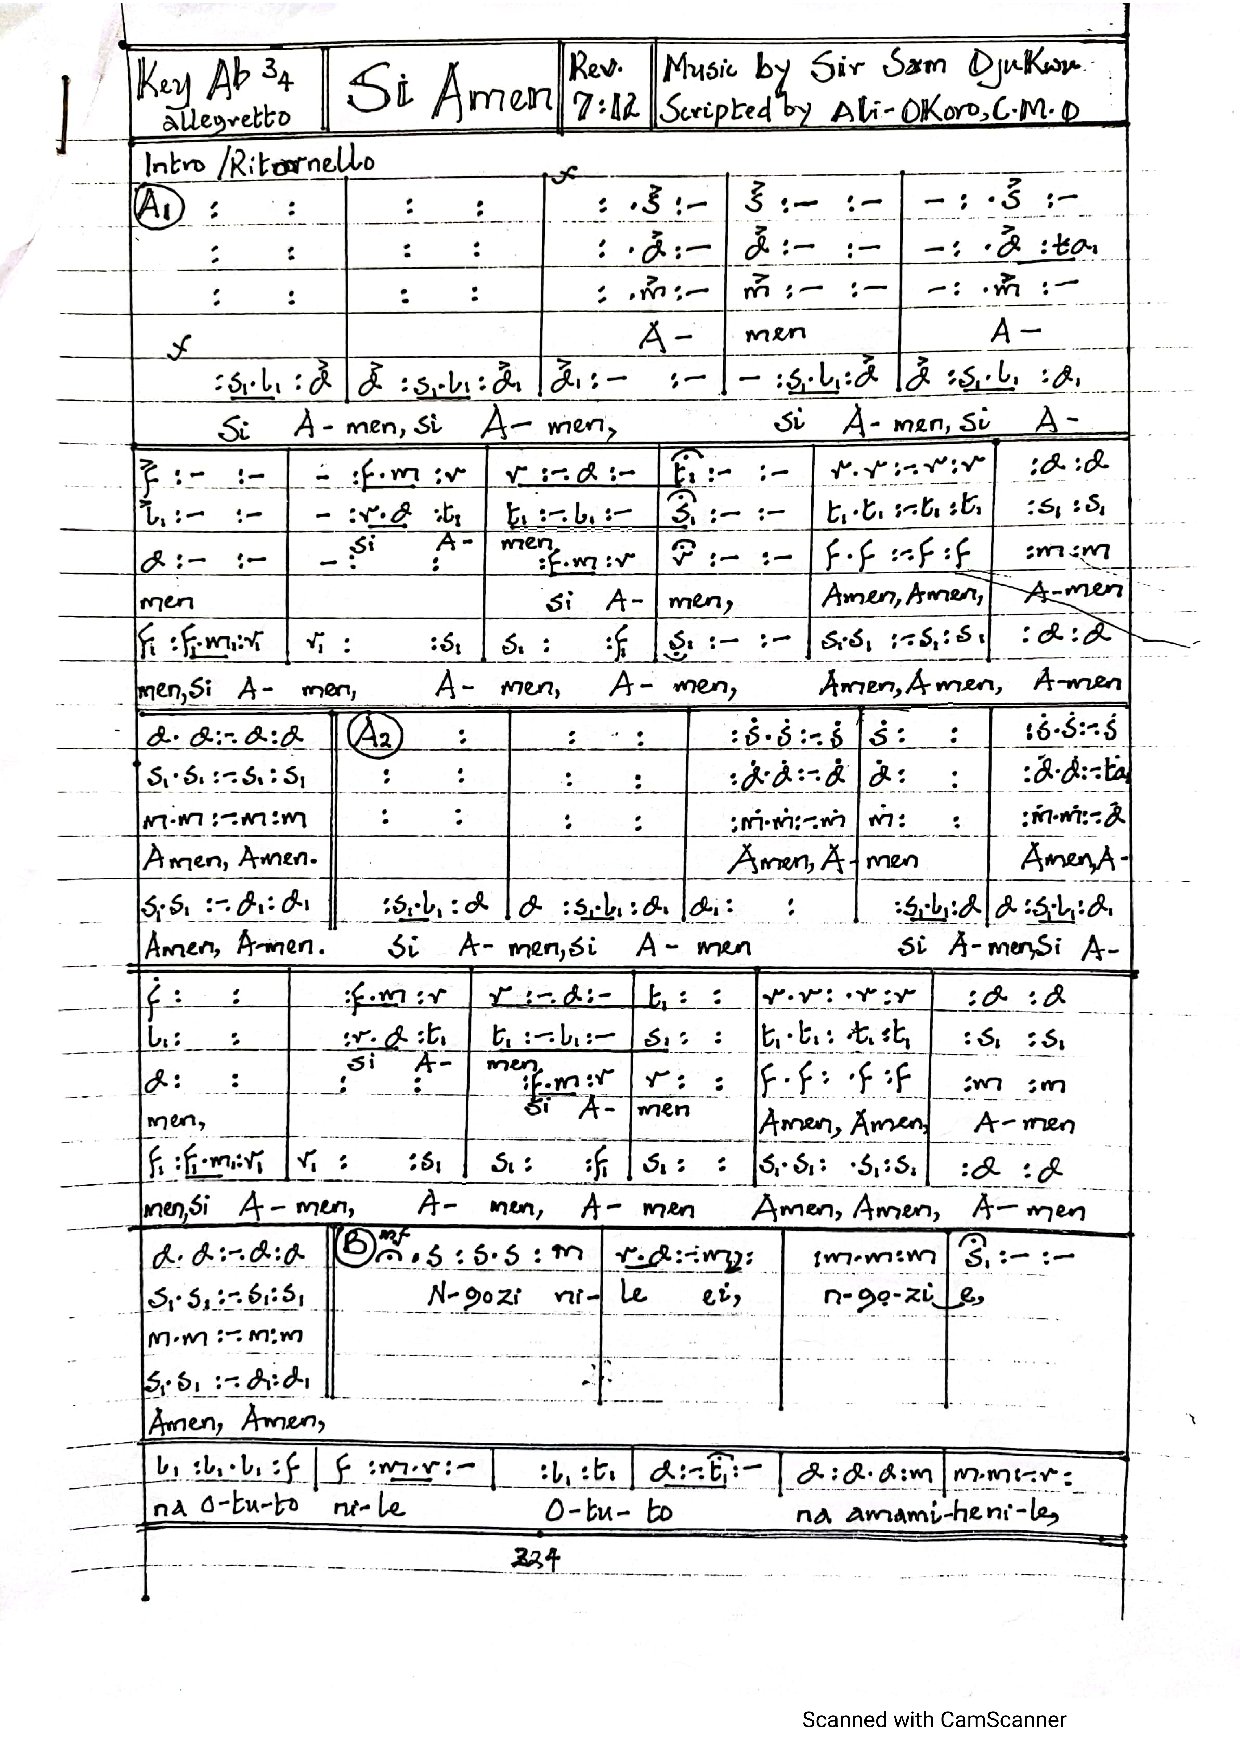 Key Ab 3/4 allegretto Si Amen Rev. 7:12 Music by Sir Sam Ojukwu
Scripted by Ali-Okoro, C.M.O
Intro /Ritornello
f
A1 : : | : : | : .s :- | s :- :- | - : .s :-
: : | : : | : .d :- | d :- :- | - : .d :ta₁
: : | : : | : .m :- | m :- :- | - : .m :-
A- men A-
f
:s₁.l₁ :d | d :s₁.l₁ :d₁ | d₁ :- :- | - :s₁.l₁ :d | d :s₁.l₁ :d₁
Si A- men, si A- men, si A- men, Si A-
f :- :- | - :f.m :r | r :-.d :- | t₁ :- :- | r.r :-.r :r | :d :d
l₁ :- :- | - :r.d :t₁ | t₁ :-.l₁ :- | s₁ :- :- | t₁.t₁ :-.t₁ :t₁ | :s₁ :s₁
si A- men
d :- :- | - : : | :f.m :r | r :- :- | f.f :-.f :f | :m :m
men si A- men, Amen, Amen, A-men
f₁ :f₁.m₁ :r₁ | r₁ : :s₁ | s₁ : :f₁ | s₁ :- :- | s₁.s₁ :-.s₁ :s₁ | :d :d
men, Si A- men, A- men, A- men, Amen, Amen, A-men
d.d :-.d :d || A2 : | : : | :s.s :-.s | s : : | :s.s :-.s
s₁.s₁ :-.s₁ :s₁ || : : | : : | :d.d :-.d | d : : | :d.d :-.ta₁
m.m :-.m :m || : : | : : | :m.m :-.m | m : : | :m.m :-.d
Amen, Amen. Amen, A- men Amen, A-
s₁.s₁ :-.d₁ :d₁ || :s₁.l₁ :d | d :s₁.l₁ :d₁ | d₁ : : | :s₁.l₁ :d | d :s₁.l₁ :d₁
Amen, A-men. Si A- men, si A- men si A- men, Si A-
f : : | :f.m :r | r :-.d :- | t₁ : : | r.r : .r :r | :d :d
l₁ : : | :r.d :t₁ | t₁ :-.l₁ :- | s₁ : : | t₁.t₁ : .t₁ :t₁ | :s₁ :s₁
si A- men
d : : | : : | :f.m :r | r : : | f.f : .f :f | :m :m
men, Si A- men Amen, Amen, A-men
f₁ :f₁.m₁ :r₁ | r₁ : :s₁ | s₁ : :f₁ | s₁ : : | s₁.s₁ : .s₁ :s₁ | :d :d
men, Si A- men, A- men, A- men Amen, Amen, A- men
d.d :-.d :d || B mf .s :s.s :m | r.d :-.m₁ : | :m.m :m | s₁ :- :-
s₁.s₁ :-.s₁ :s₁ N-gozi ni- le ei, n-go-zi e,
m.m :-.m :m
s₁.s₁ :-.d₁ :d₁
Amen, Amen,
l₁ :l₁.l₁ :f | f :m.r :- | :l₁ :t₁ | d :-.t₁ :- | d :d.d :m | m.m :-.r :
na O-tu-to ni-le O-tu-to na amami-heni-le,
224
Scanned with CamScanner